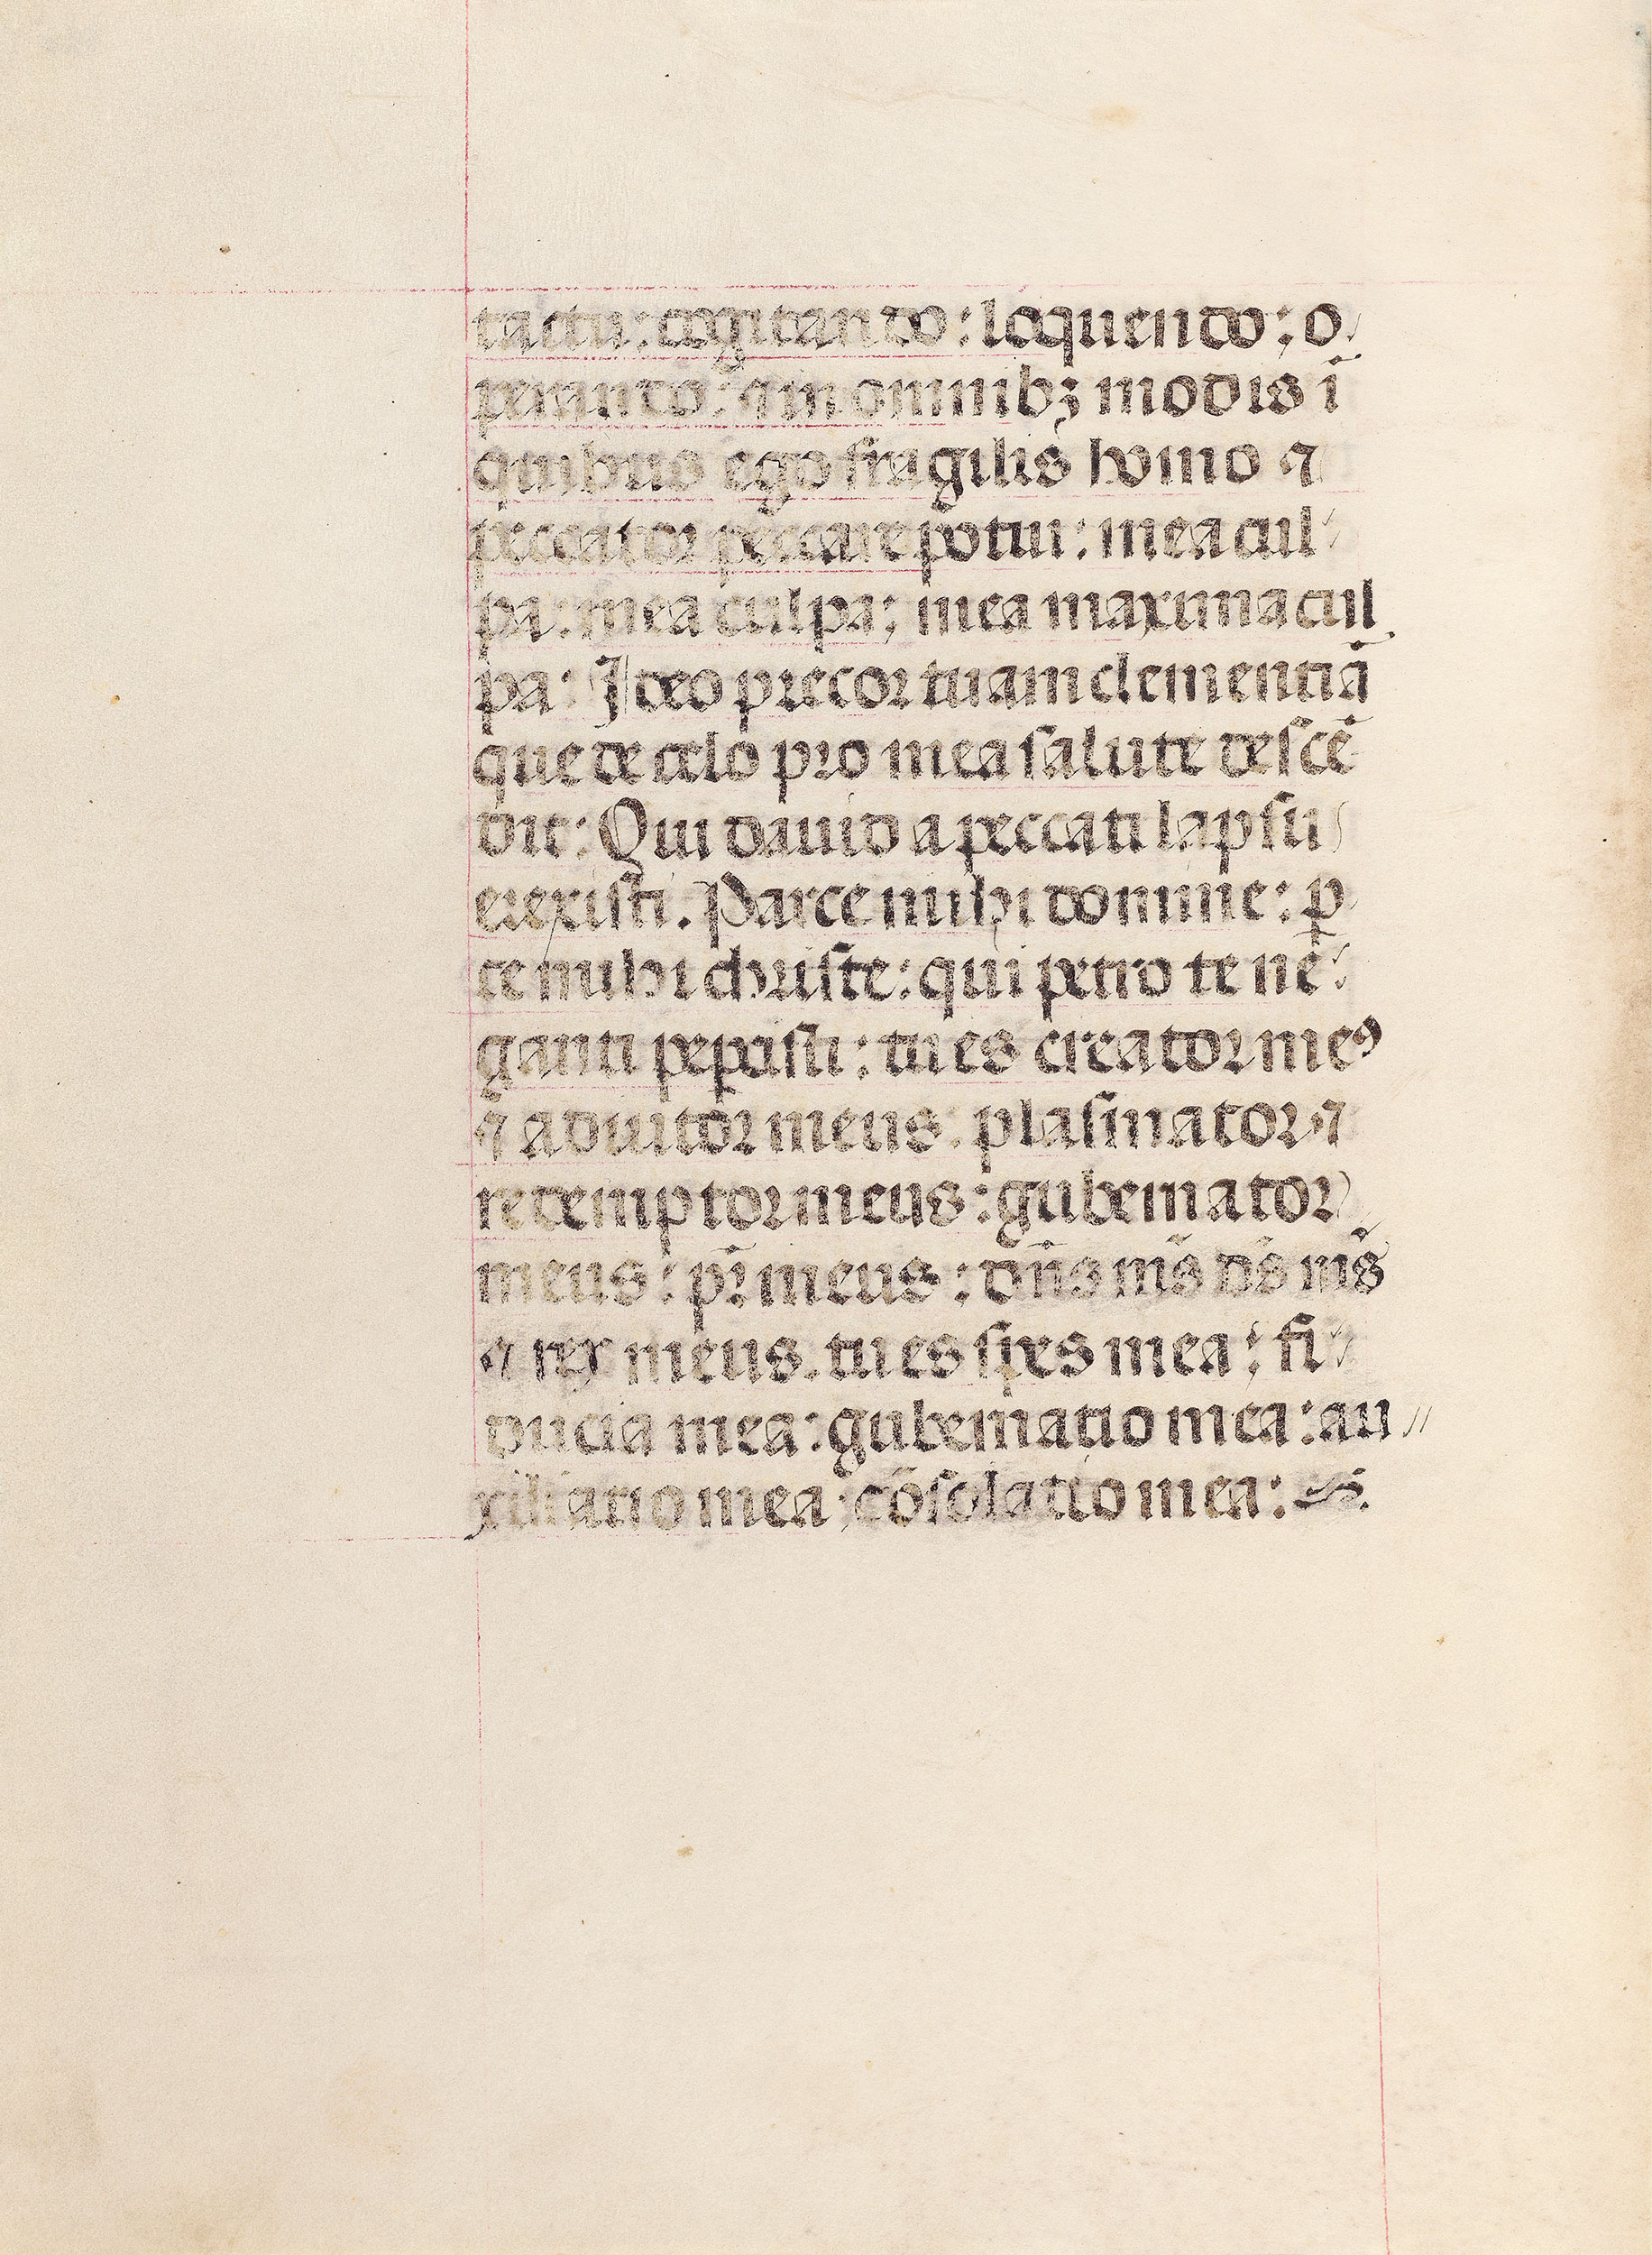 tactu: cogitando: loquendo: o
perando: ⁊ in omnibꝫ modis ī
quibus ego fragilis homo ⁊
peccator peccare potui: mea cul
pa: mea culpa: mea maxima cul
pa: Ideo precor tuam clementiā
que de celo pro mea salute descē
dit: Qui dauid a peccati lapsu
erexisti. Parce mihi domine: ꝑ
ce mihi christe: qui petro te ne
ganti pepcisti: tu es creator meꝰ
⁊ adiutor meus. plasmator ⁊
redemptor meus: gubernator
meus: pr̄ meus: dn̄s ms̄ ds̄ ms̄
⁊ rex meus. tu es spes mea: fi
ducia mea: gubernatio mea: au
xiliatio mea: cōsolatio mea: